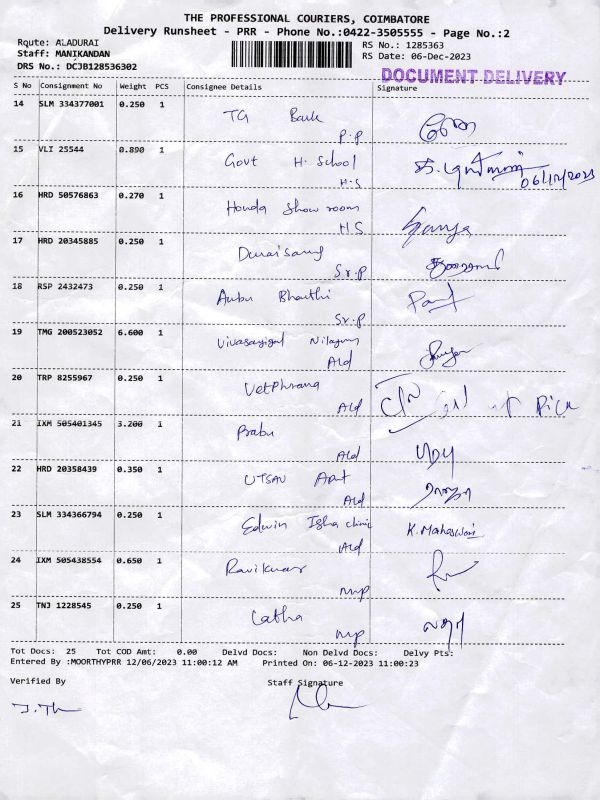 THE PROFESSIONAL COURIERS, COIMBATORE
Delivery Runsheet - PRR - Phone No.:0422-3505555 - Page No.:2
Rqute: ALADURAI
RS No.: 1285363
Staff: MANIKANDAN
RS Date: 06-Dec-2023
DRS No.: DCJB128536302
DOCUMENT DELIVERY
S No Consignment No Weight PCS Consignee Details Signature
14 SLM 334377001 0.250 1
TG Bank
P.P
15 VLI 25544 0.890 1
Govt H. School
H.S
06/12/2023
16 HRD 50576863 0.270 1
Honda Show room
H S
17 HRD 20345885 0.250 1
Duraisamy
Sr.P
18 RSP 2432473 0.250 1
Anbu Bharthi
Sr.P
19 TMG 200523052 6.600 1
Nilayam
Ald
20 TRP 8255967 0.250 1
VetPhrana
Ald
21 IXM 505401345 3.200 1
Prabu
Ald
22 HRD 20358439 0.350 1
UTSAV Apat
Ald
23 SLM 334366794 0.250 1
Edwin Isha clinic K. Maheswari
Ald
24 IXM 505438554 0.650 1
Ravikumar
mp
25 TNJ 1228545 0.250 1
Latha லதா
mp
Tot Docs: 25 Tot COD Amt: 0.00 Delvd Docs: Non Delvd Docs: Delvy Pts:
Entered By :MOORTHYPRR 12/06/2023 11:00:12 AM Printed On: 06-12-2023 11:00:23
Verified By Staff Signature